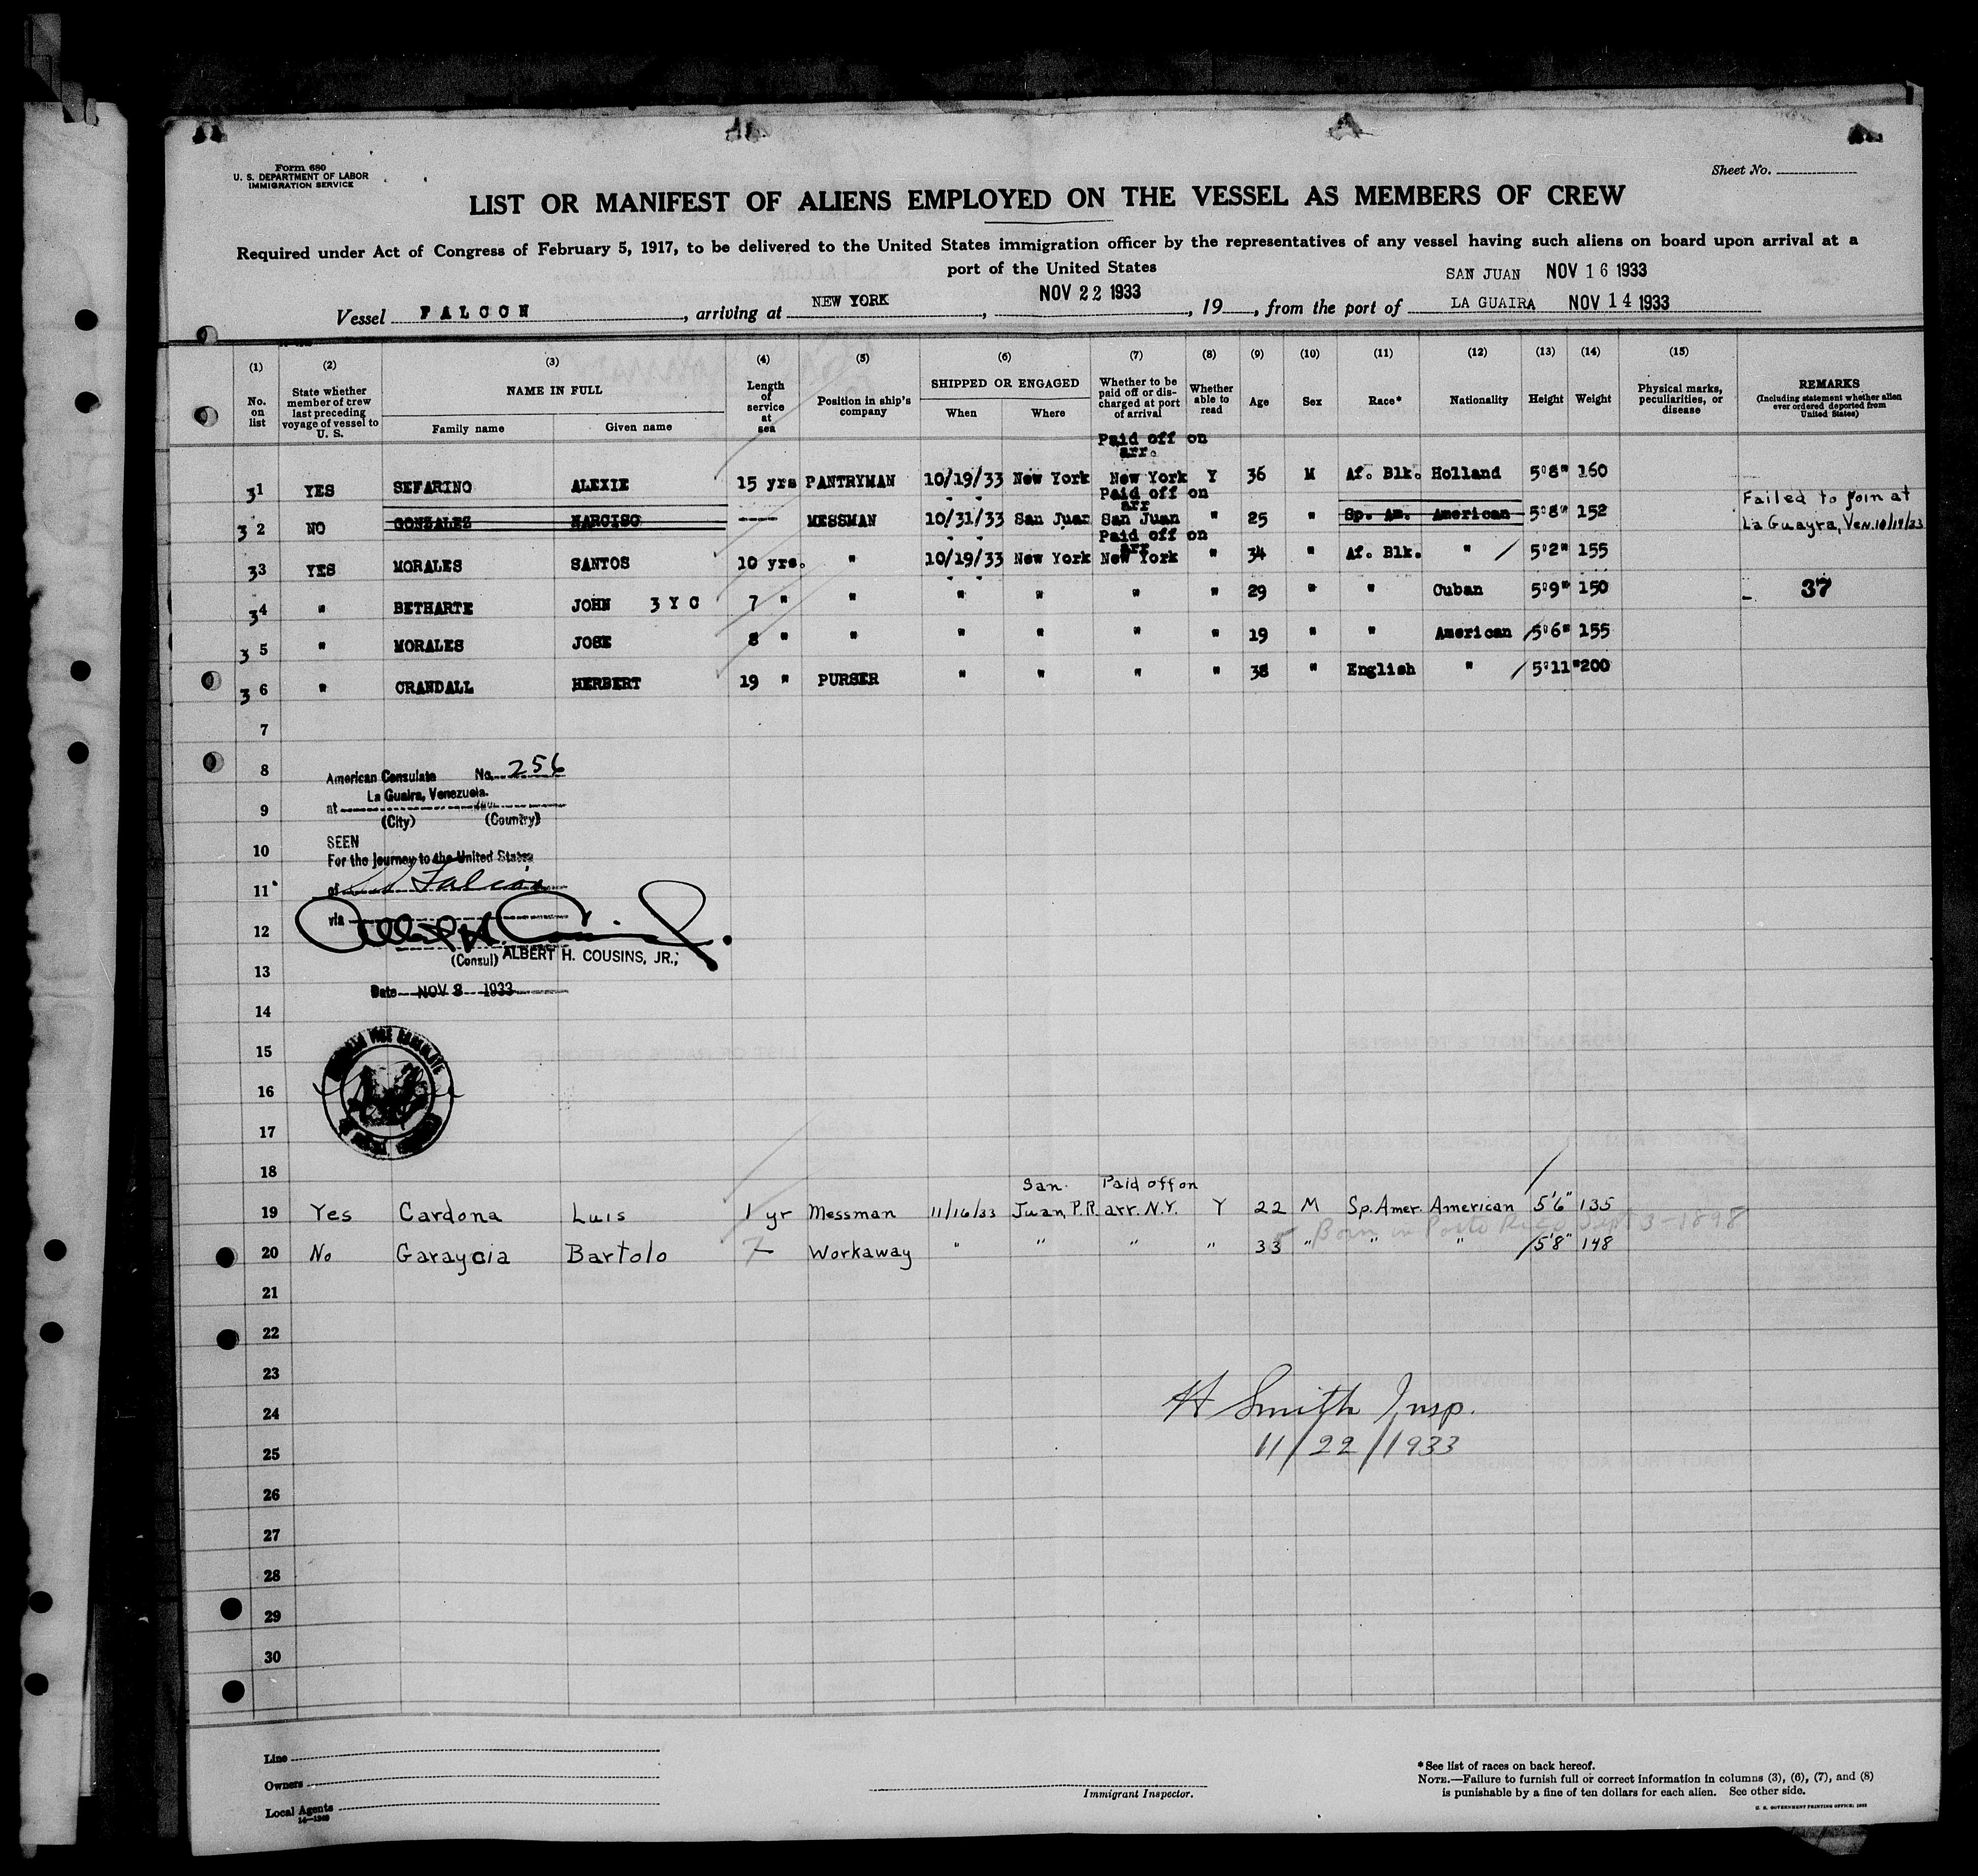 Form 680
U. S. DEPARTMENT OF LABOR
IMMIGRATION SERVICE
Sheet No.
LIST OR MANIFEST OF ALIENS EMPLOYED ON THE VESSEL AS MEMBERS OF CREW
Required under Act of Congress of February 5, 1917, to be delivered to the United States immigration officer by the representatives of any vessel having such aliens on board upon arrival at a
port of the United States
SAN JUAN NOV 16 1933
Vessel FALCON, arriving at NEW YORK, NOV 22 1933, 19, from the port of LA GUAIRA NOV 14 1933
(1) (2) (3) (4) (5) (6) (7) (8) (9) (10) (11) (12) (13) (14) (15)
No. on list
State whether member of crew last preceding voyage of vessel to U. S.
NAME IN FULL
Family name Given name
Length of service at sea
Position in ship's company
SHIPPED OR ENGAGED
When Where
Whether to be paid off or discharged at port of arrival
Whether able to read
Age
Sex
Race*
Nationality
Height
Weight
Physical marks, peculiarities, or disease
REMARKS
(Including statement whether alien ever ordered deported from United States)
Paid off on
arr.
31 YES SEFARINO ALEXIE 15 yrs PANTRYMAN 10/19/33 New York New York Y 36 M Af. Blk. Holland 5'8" 160
Paid off on
arr
32 NO GONZALEZ NARCISO ---- MESSMAN 10/31/33 San Juan San Juan " 25 " Sp. Am. American 5'8" 152 Failed to join at
La Guayra, Ven.
Paid off on
arr
33 YES MORALES SANTOS 10 yrs. " 10/19/33 New York New York " 34 " Af. Blk. " 5'2" 155
34 " BETHARTE JOHN 3 Y C 7 " " " " " " 29 " " Cuban 5'9" 150 - 37
35 " MORALES JOSE 8 " " " " " " 19 " " American 5'6" 155
36 " CRANDALL HERBERT 19 " PURSER " " " " 38 " English " 5'11" 200
7
8
American Consulate No. 256
La Guaira, Venezuela.
9
at
(City) (Country)
10
SEEN
For the journey to the United States
11
of Falcon
via
12
(Consul) ALBERT H. COUSINS, JR.,
13
Date NOV 8 1933
14
15
16
17
18
San. Paid off on
19 Yes Cardona Luis 1 yr Messman 11/16/33 Juan, P.R. arr. N.Y. Y 22 M Sp. Amer. American 5'6" 135
Born in Porto Rico Sept 3-1898
20 No Garaycia Bartolo — Workaway " " " " 33 " " " 5'8" 148
21
22
23
24
H Smith Insp.
25
11/22/1933
26
27
28
29
30
Line
Owners
Local Agents
14—1240
Immigrant Inspector.
*See list of races on back hereof.
NOTE.—Failure to furnish full or correct information in columns (3), (6), (7), and (8)
is punishable by a fine of ten dollars for each alien. See other side.
U. S. GOVERNMENT PRINTING OFFICE: